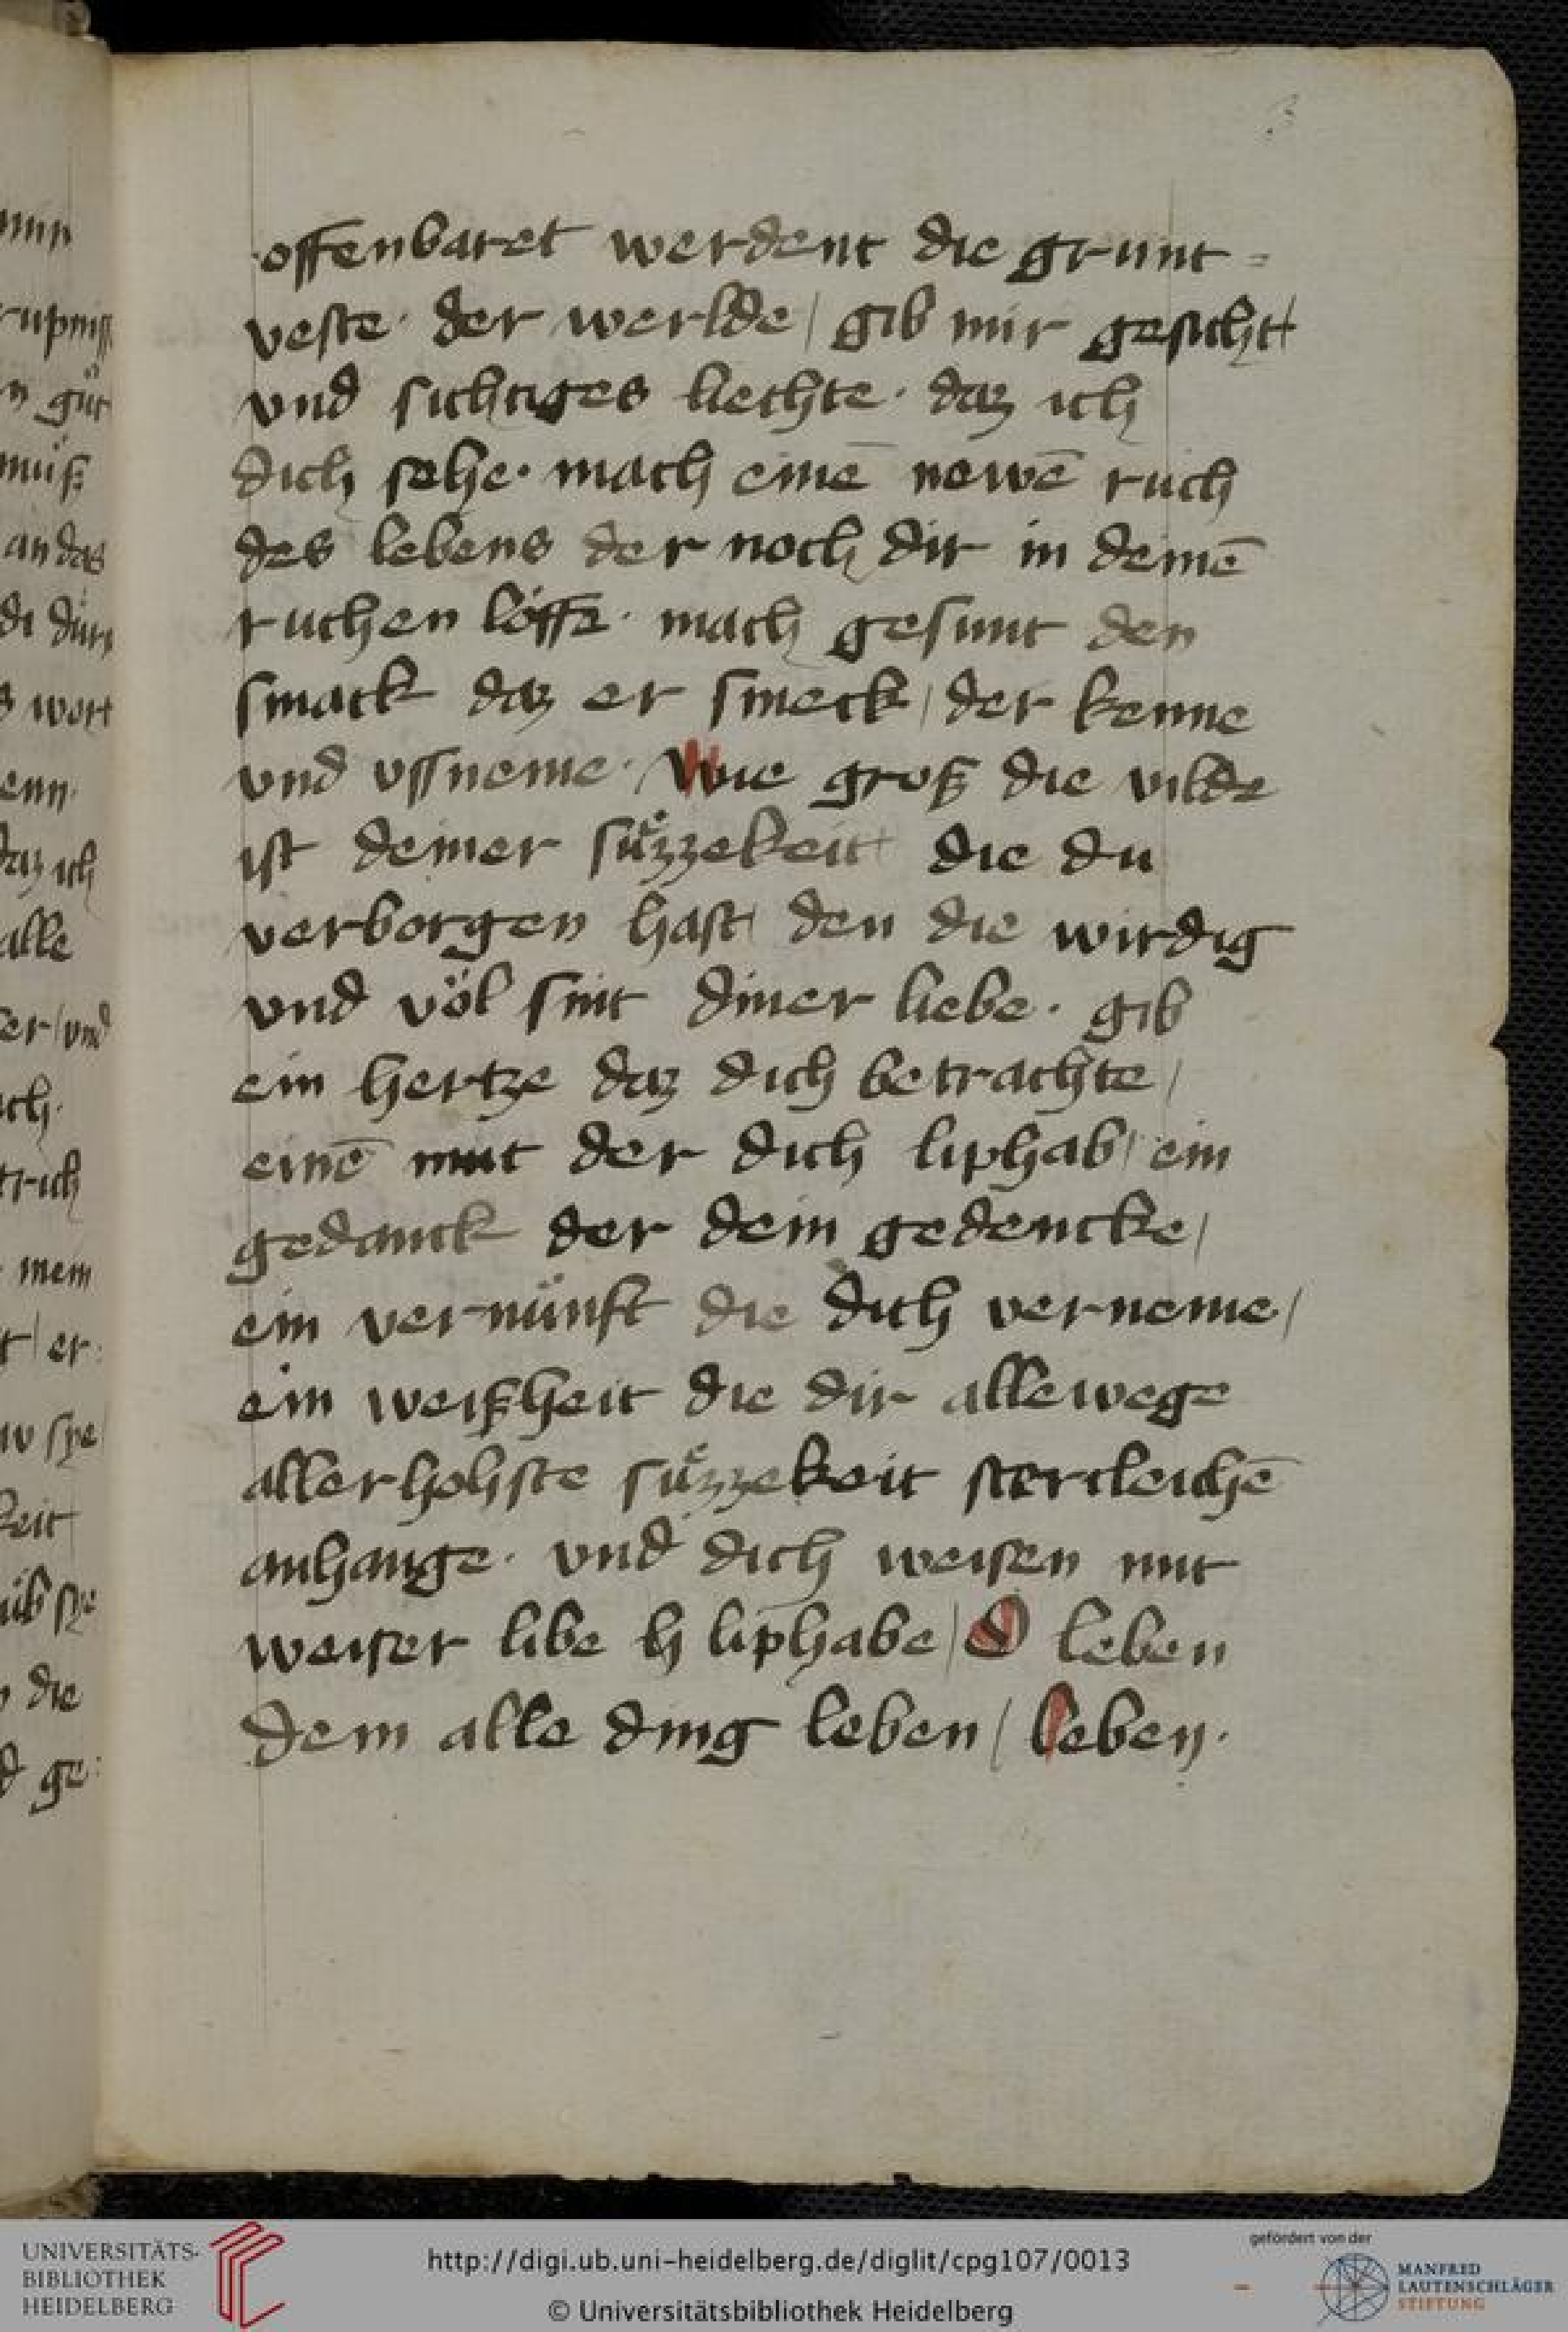 3
offenbaret werdent die grunt =
veste · der werlde / gib mir gesicht
vnd sichtiges liechte · daz ich
dich sehe · mach einē newē ruch
des lebens der noch dir in deinē
ruchen löffe · mach gesunt den
smack daz er smeck / der kenne
vnd vssneme · Wie groß die vilde
ist deiner suͤzzekeit die du
verborgen hast den die wirdig
vnd völ sint diner liebe · gib
ein hertze daz dich betrachte /
einē mut der dich liphab / ein
gedanck der dein gedencke /
ein vernuͤnft die dich verneme /
ein weißheit die dir allewege
allerhohste suͤzzekeit stercleichē
anhange · vnd dich weisen mit
weiser libe h liphabe / O leben
dem alle ding leben / leben ·
UNIVERSITÄTS-
BIBLIOTHEK
HEIDELBERG
http://digi.ub.uni-heidelberg.de/diglit/cpg107/0013
© Universitätsbibliothek Heidelberg
gefördert von der
MANFRED
LAUTENSCHLÄGER
STIFTUNG